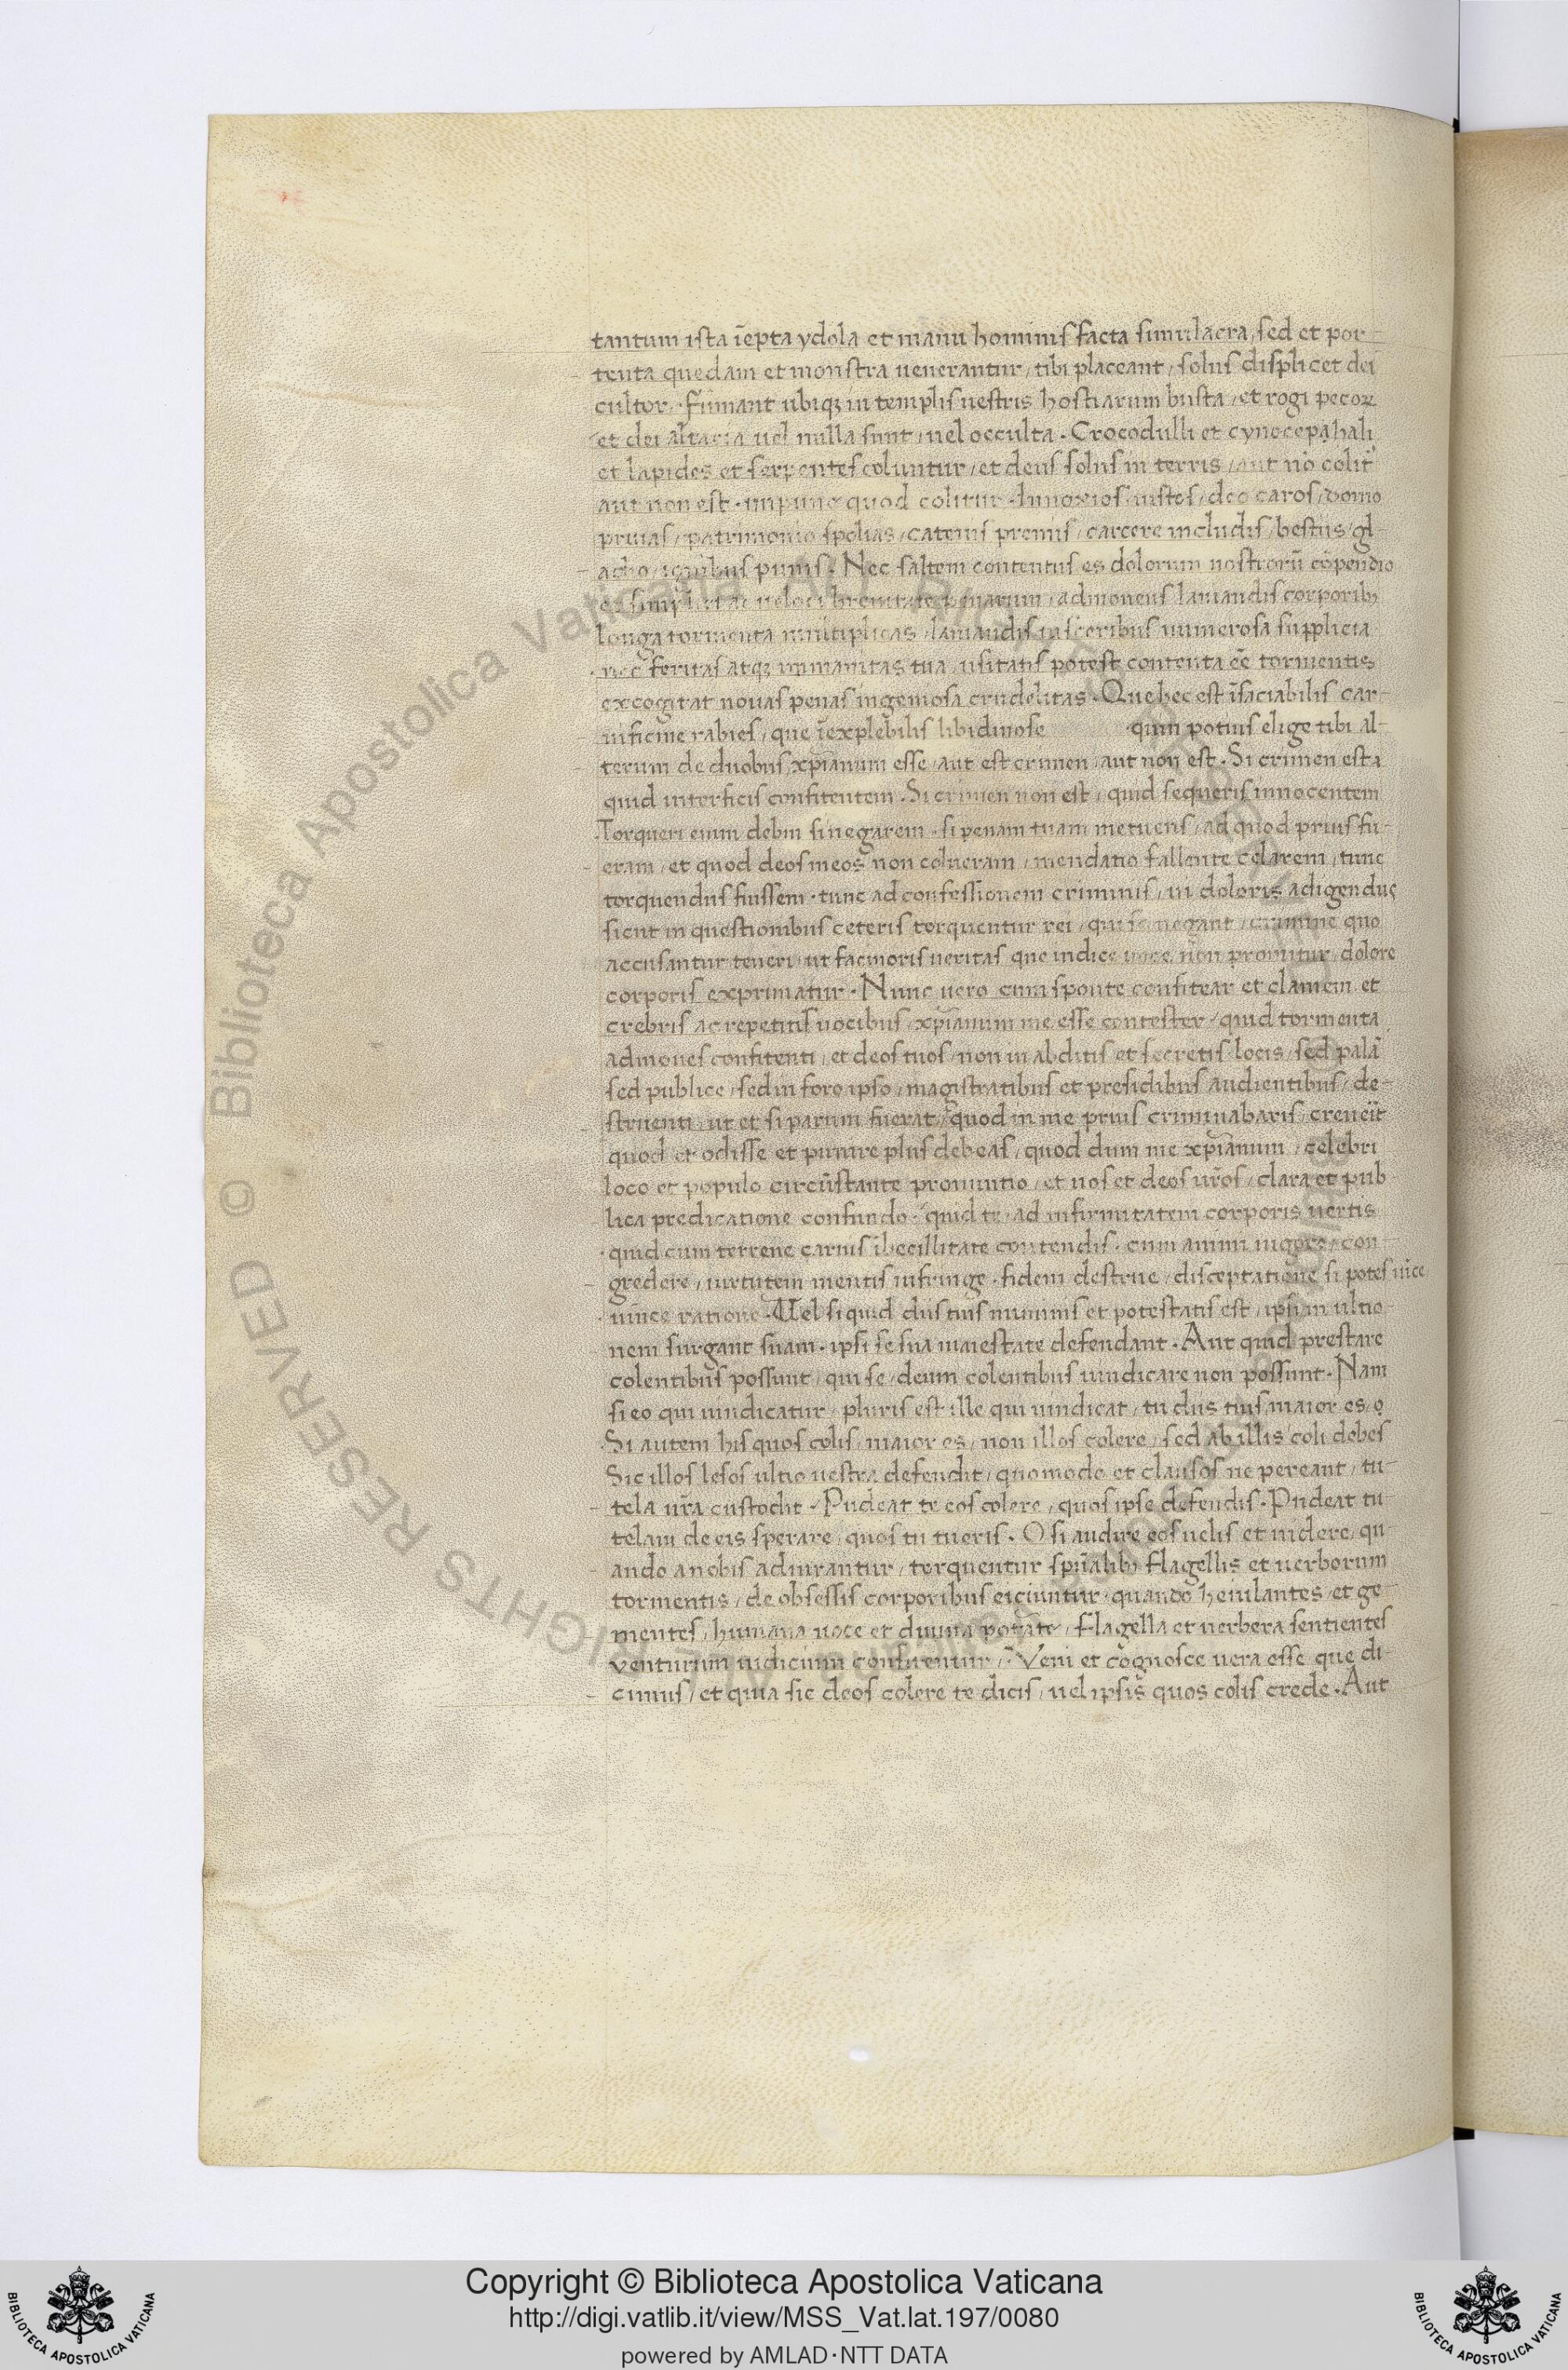 tantum ista īepta ydola et manu hominis facta simulacra, sed et por-
tenta quedam et monstra uenerantur, tibi placeant, solus displicet dei
cultor. fumant ubiqꝫ in templis uestris hostiarum busta, et rogi pecoꝝ
et dei altaria uel nulla sunt, uel occulta. Crocodulli et cynocepahali
et lapides et serpentes coluntur, et deus solus in terris, aut nō colit
aut non est impune quod colitur. Innoxios iustos, deo caros, domo
priuas, patrimonio spolias, catenis premis, carcere includis, bestiis, gl-
adio, ignibus punis. Nec saltem contentus es dolorum nostrorū cōpendio
et simplici ac ueloci breuitate penarum, admouens laniandis corporibꝫ
longa tormenta multiplicas, laniandis uisceribus numerosa supplicia
nec feritas atqꝫ immanitas tua, usitatis potest contenta eē tormentis
excogitat nouas penas ingeniosa crudelitas. Que hec est īsaciabilis car-
nificine rabies, que īexplebilis libidinose quin potius elige tibi al-
terum de duobus, xp̄ianum esse, aut est crimen, aut non est. Si crimen est a
quid interficis confitentem. Si crimen non est, quid sequeris innocentem
Torqueri enim debui si negarem. si penam tuam metuens, ad quod prius fu-
eram, et quod deos meos non colueram, mendatio fallente celarem, tunc
torquendus fuissem. tunc ad confessionem criminis, ui doloris adigendus
sicut in questionibus ceteris torquentur rei, qui se negant, crimine quo
accusantur teneri, ut facinoris ueritas que indice uoce nōn promitur, dolore
corporis exprimatur. Nunc uero cum sponte confitear et clamem et
crebris ac repetitis uocibus, xp̄ianum me esse contester, quid tormenta
admoues confitenti, et deos tuos, non in abditis et secretis locis, sed palā
sed publice, sed in foro ipso, magistratibus et presidibus audientibus, de-
struenti, ut et si parum fuerat, quod in me prius criminabaris, creueīt
quod et odisse et punire plus debeas, quod dum me xp̄ianum, celebri
loco et populo circūstante pronuntio, et uos et deos ur̄os, clara et pub-
lica predicatione confundo. quid te, ad infirmitatem corporis uertis
quid cum terrene carnis ībecillitate contendis. cum animi uigore, con-
gredere, uirtutem mentis infringe. fidem destrue, disceptatione si potes uīce
uince ratione. Uel si quid diis tuis numinis et potestatis est, ipsi in ultio-
nem surgant suam. ipsi se sua maiestate defendant. Aut quid prestare
colentibus possunt, qui se, deum colentibus uindicare non possunt. Nam
si eo qui uindicatur, pluris est ille qui uindicat, tu diis tuis maior es, o
Si autem his quos colis, maior es, non illos colere, sed ab illis coli debes
Sic illos lesos ultio uestra defendit, quomodo et clausos ne pereant, tu-
tela ur̄a custodit. Pudeat te eos colere, quos ipse defendis. Pudeat tu-
telam de eis sperare, quos tu tueris. O si audire eos uelis et uidere, qu-
ando a nobis adiurantur, torquentur spūalibꝫ flagellis et uerborum
tormentis, de obsessis corporibus eiciuntur, quando heiulantes, et ge-
mentes, humana uoce et diuina potāte, flagella et uerbera sentientes
venturum iudicium confitentur. Veni et cognosce uera esse que di-
cimus, et quia sic deos colere te dicis, uel ipsis quos colis crede. Aut
© Biblioteca Apostolica Vaticana
RIGHTS RESERVED
BIBLIOTECA APOSTOLICA VATICANA
Copyright © Biblioteca Apostolica Vaticana
http://digi.vatlib.it/view/MSS_Vat.lat.197/0080
powered by AMLAD·NTT DATA
BIBLIOTECA APOSTOLICA VATICANA